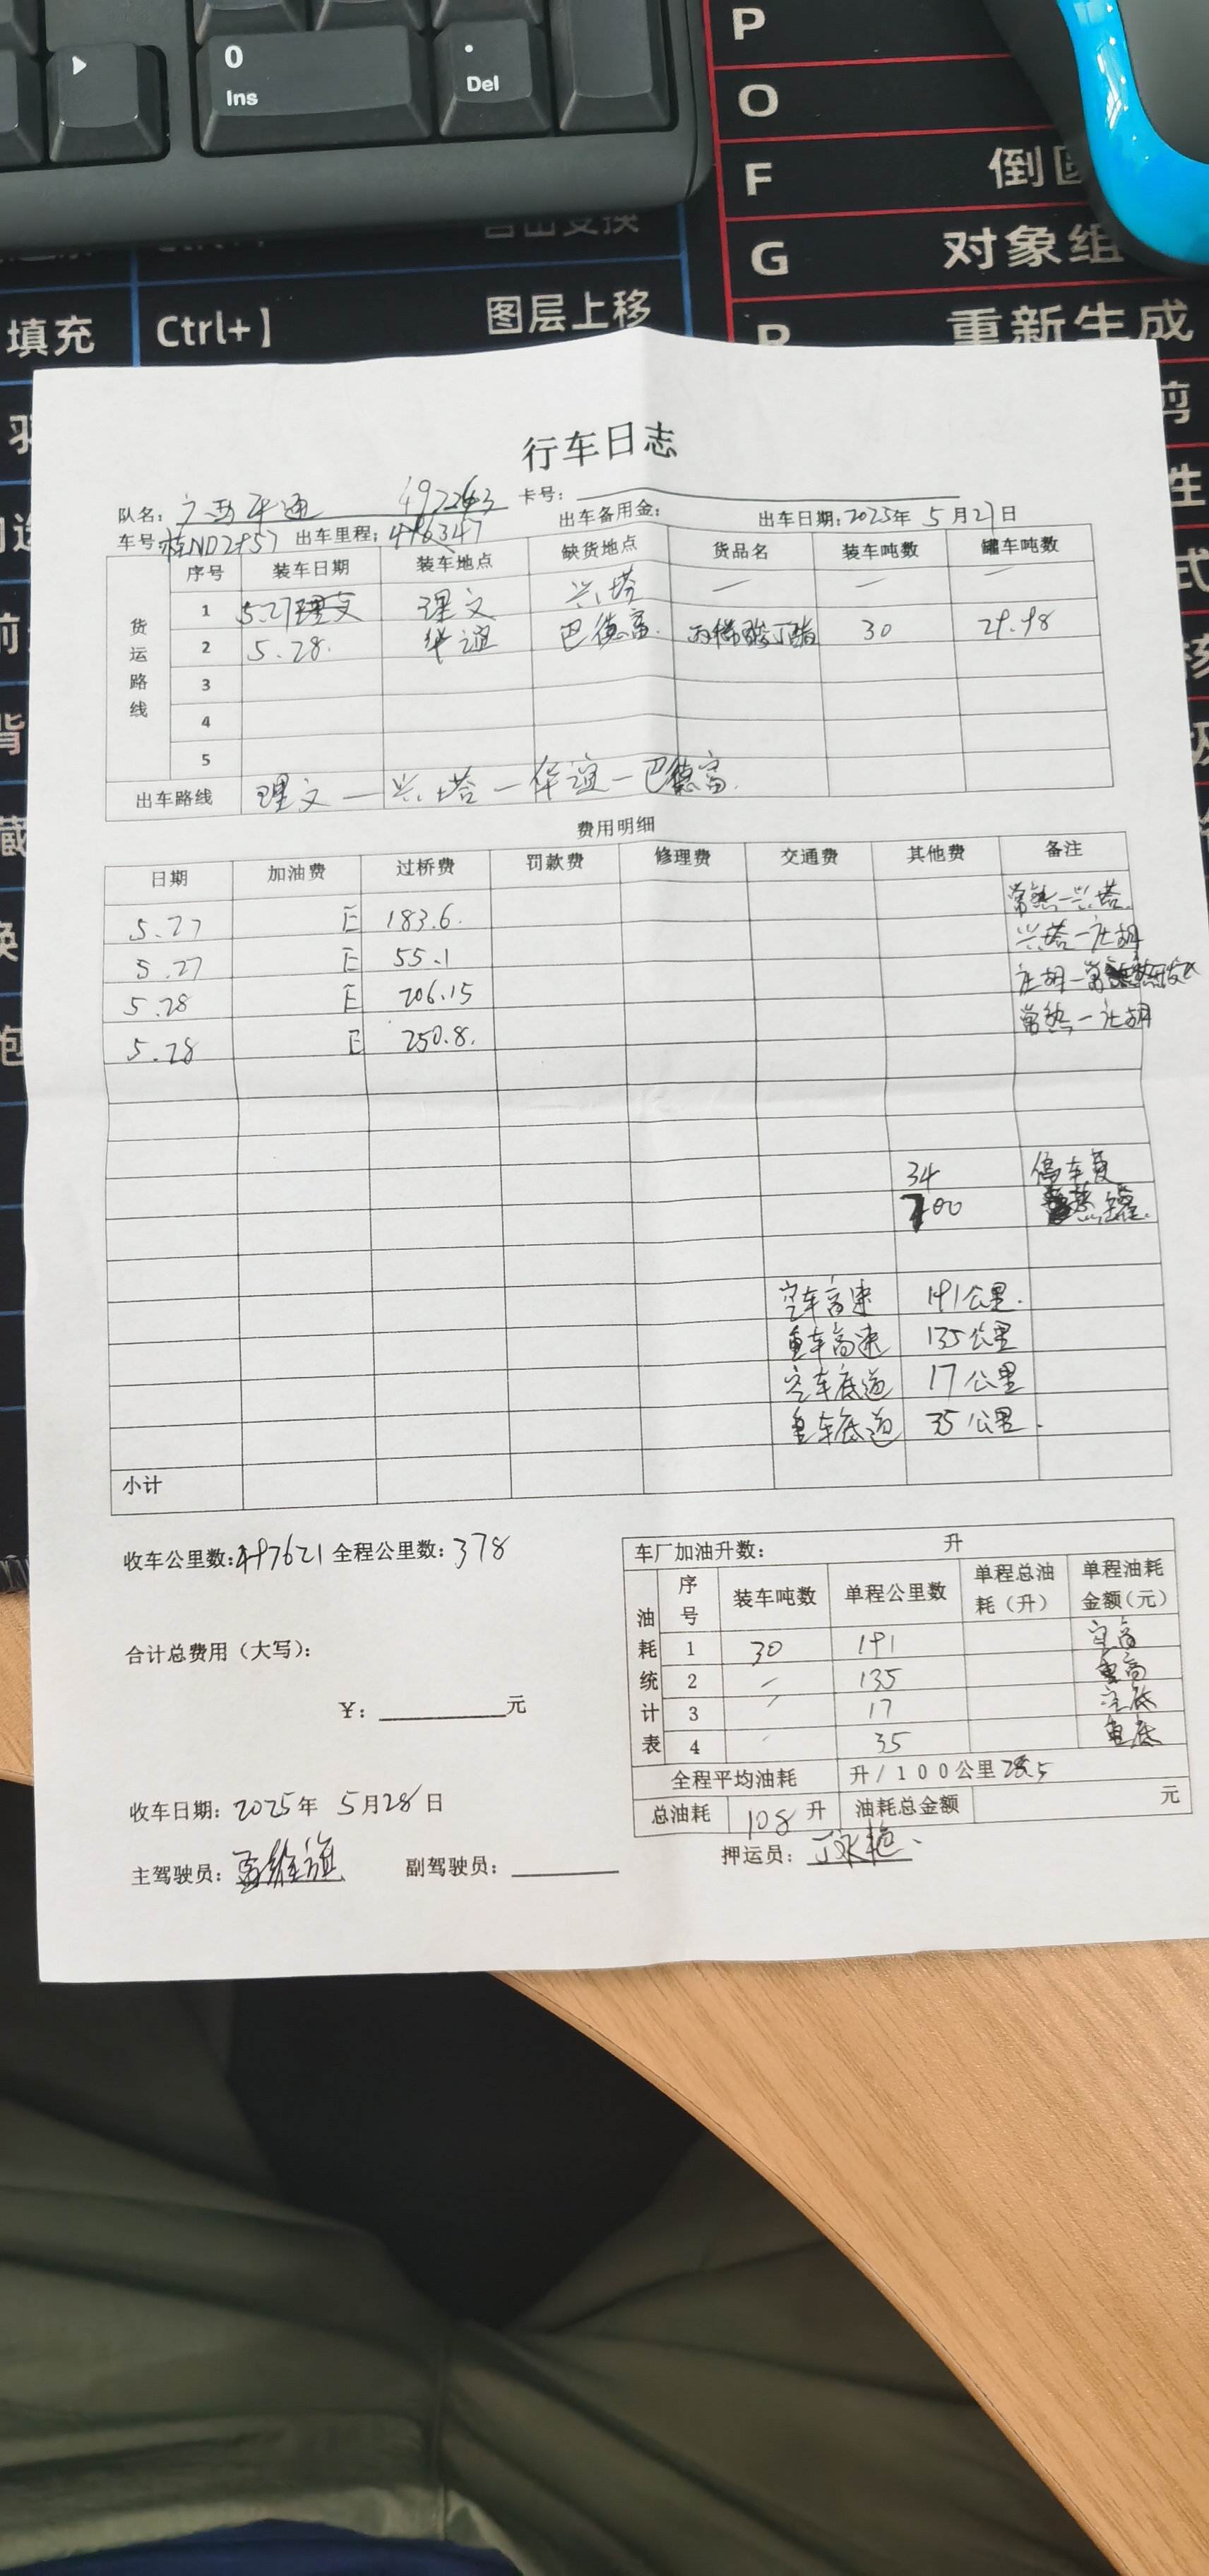 0
Ins
Del
P
O
F
倒
G
对象组
填充
Ctrl+】
图层上移
重新生成
行车日志
队名: 广西平通
卡号:
车号:桂ND2957 出车里程:
出车备用金:
出车日期:2025年 5月27日
货运路线
序号 装车日期 装车地点 缺货地点 货品名 装车吨数 罐车吨数
1 5.27 理文 兴塔 — — —
2 5.28. 华谊 巴德富. 丙烯酸丁酯 30 29.98
3
4
5
出车路线 理文—兴塔—华谊—巴德富.
费用明细
日期 加油费 过桥费 罚款费 修理费 交通费 其他费 备注
5.27 E 183.6. 常熟—兴塔.
5.27 E 55.1 兴塔—庄胡
5.28 E 206.15 庄胡—常熟
5.28 E 250.8. 常熟—庄胡
34 停车费
700
空车高速 191公里.
重车高速 135公里
空车底道 17公里
重车底道 35公里.
小计
收车公里数:497621 全程公里数:378
合计总费用(大写):
¥: 元
收车日期: 2025年 5月28日
主驾驶员: 副驾驶员:
车厂加油升数: 升
油耗统计表
序号 装车吨数 单程公里数 单程总油耗(升) 单程油耗金额(元)
1 30 191 空高
2 135 重高
3 17 空底
4 35 重底
全程平均油耗 升/100公里
总油耗 108升 油耗总金额 元
押运员: 丁永艳